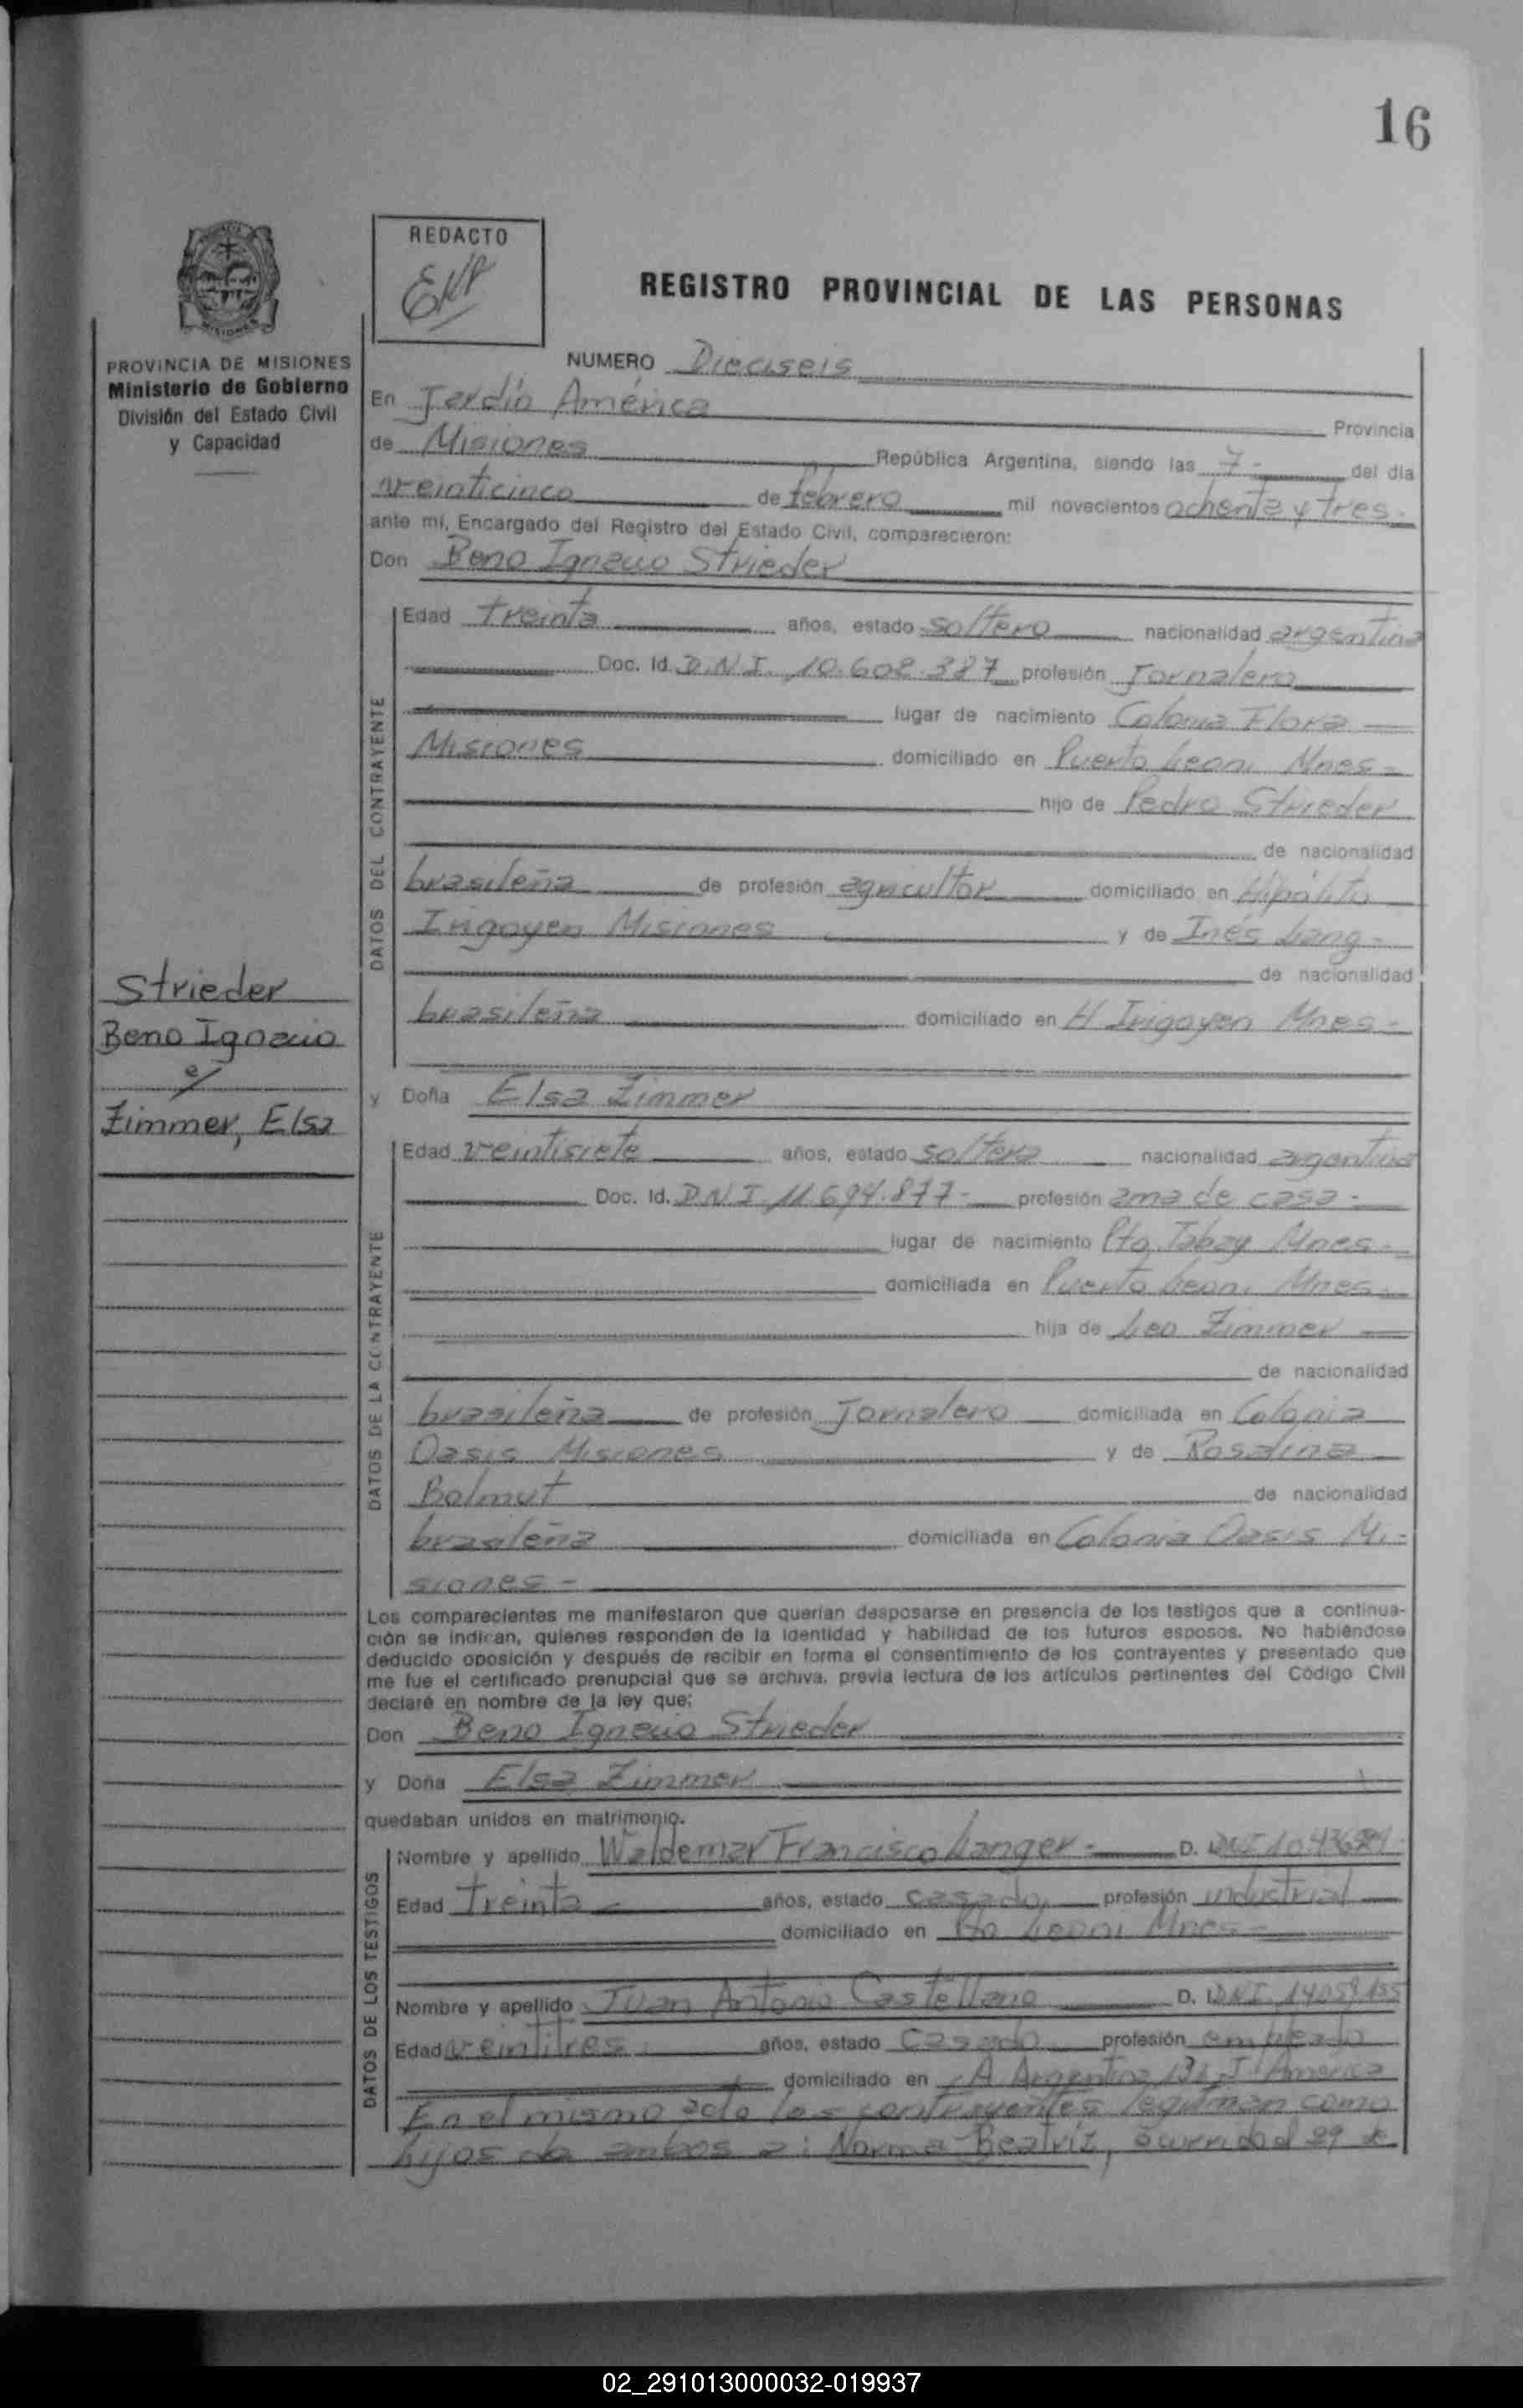 16
REDACTO
REGISTRO PROVINCIAL DE LAS PERSONAS
PROVINCIA DE MISIONES
Ministerio de Gobierno
División del Estado Civil
y Capacidad
NUMERO Dieciseis
En Jardín América Provincia
de Misiones República Argentina, siendo las 7- del día
veinticinco de febrero mil novecientos ochenta y tres-
ante mí, Encargado del Registro del Estado Civil, comparecieron:
Don Beno Ignacio Strieder
DATOS DEL CONTRAYENTE
Edad treinta años, estado soltero nacionalidad argentina
Doc. Id. D.N.I. 10.608.387 profesión Jornalero
lugar de nacimiento Colonia Flora
Misiones domiciliado en Puerto Leoni Mnes-
hijo de Pedro Strieder
de nacionalidad
brasileña de profesión agricultor domiciliado en Hipólito
Irigoyen Misiones y de Inés Lang-
de nacionalidad
brasileña domiciliado en H Irigoyen Mnes-
Strieder
Beno Ignacio
c/
Zimmer, Elsa
y Doña Elsa Zimmer
DATOS DE LA CONTRAYENTE
Edad veintisiete años, estado soltera nacionalidad argentina
Doc. Id. D.N.I. 11.694.877- profesión ama de casa-
lugar de nacimiento Pto Tabay Mnes-
domiciliada en Puerto Leoni Mnes-
hija de Leo Zimmer
de nacionalidad
brasileña de profesión Jornalero domiciliada en Colonia
Oasis Misiones y de Rosalina
Bolmut de nacionalidad
brasileña domiciliada en Colonia Oasis Mi-
siones-
Los comparecientes me manifestaron que querían desposarse en presencia de los testigos que a continua-
ción se indican, quienes responden de la identidad y habilidad de los futuros esposos. No habiéndose
deducido oposición y después de recibir en forma el consentimiento de los contrayentes y presentado que
me fue el certificado prenupcial que se archiva, previa lectura de los artículos pertinentes del Código Civil
declaré en nombre de la ley que:
Don Beno Ignacio Strieder
y Doña Elsa Zimmer
quedaban unidos en matrimonio.
DATOS DE LOS TESTIGOS
Nombre y apellido Waldemar Francisco Langer- D. I. DNI
Edad Treinta años, estado casado profesión industrial
domiciliado en Pto Leoni Mnes-
Nombre y apellido Juan Antonio Castellano D. I. DNI 14059155
Edad veintitres años, estado casado profesión empleado
domiciliado en A Argentina J America
En el mismo acto los contrayentes legitiman como
hijos de ambos a: Norma Beatriz, ocurrido el 29 de
02_291013000032-019937